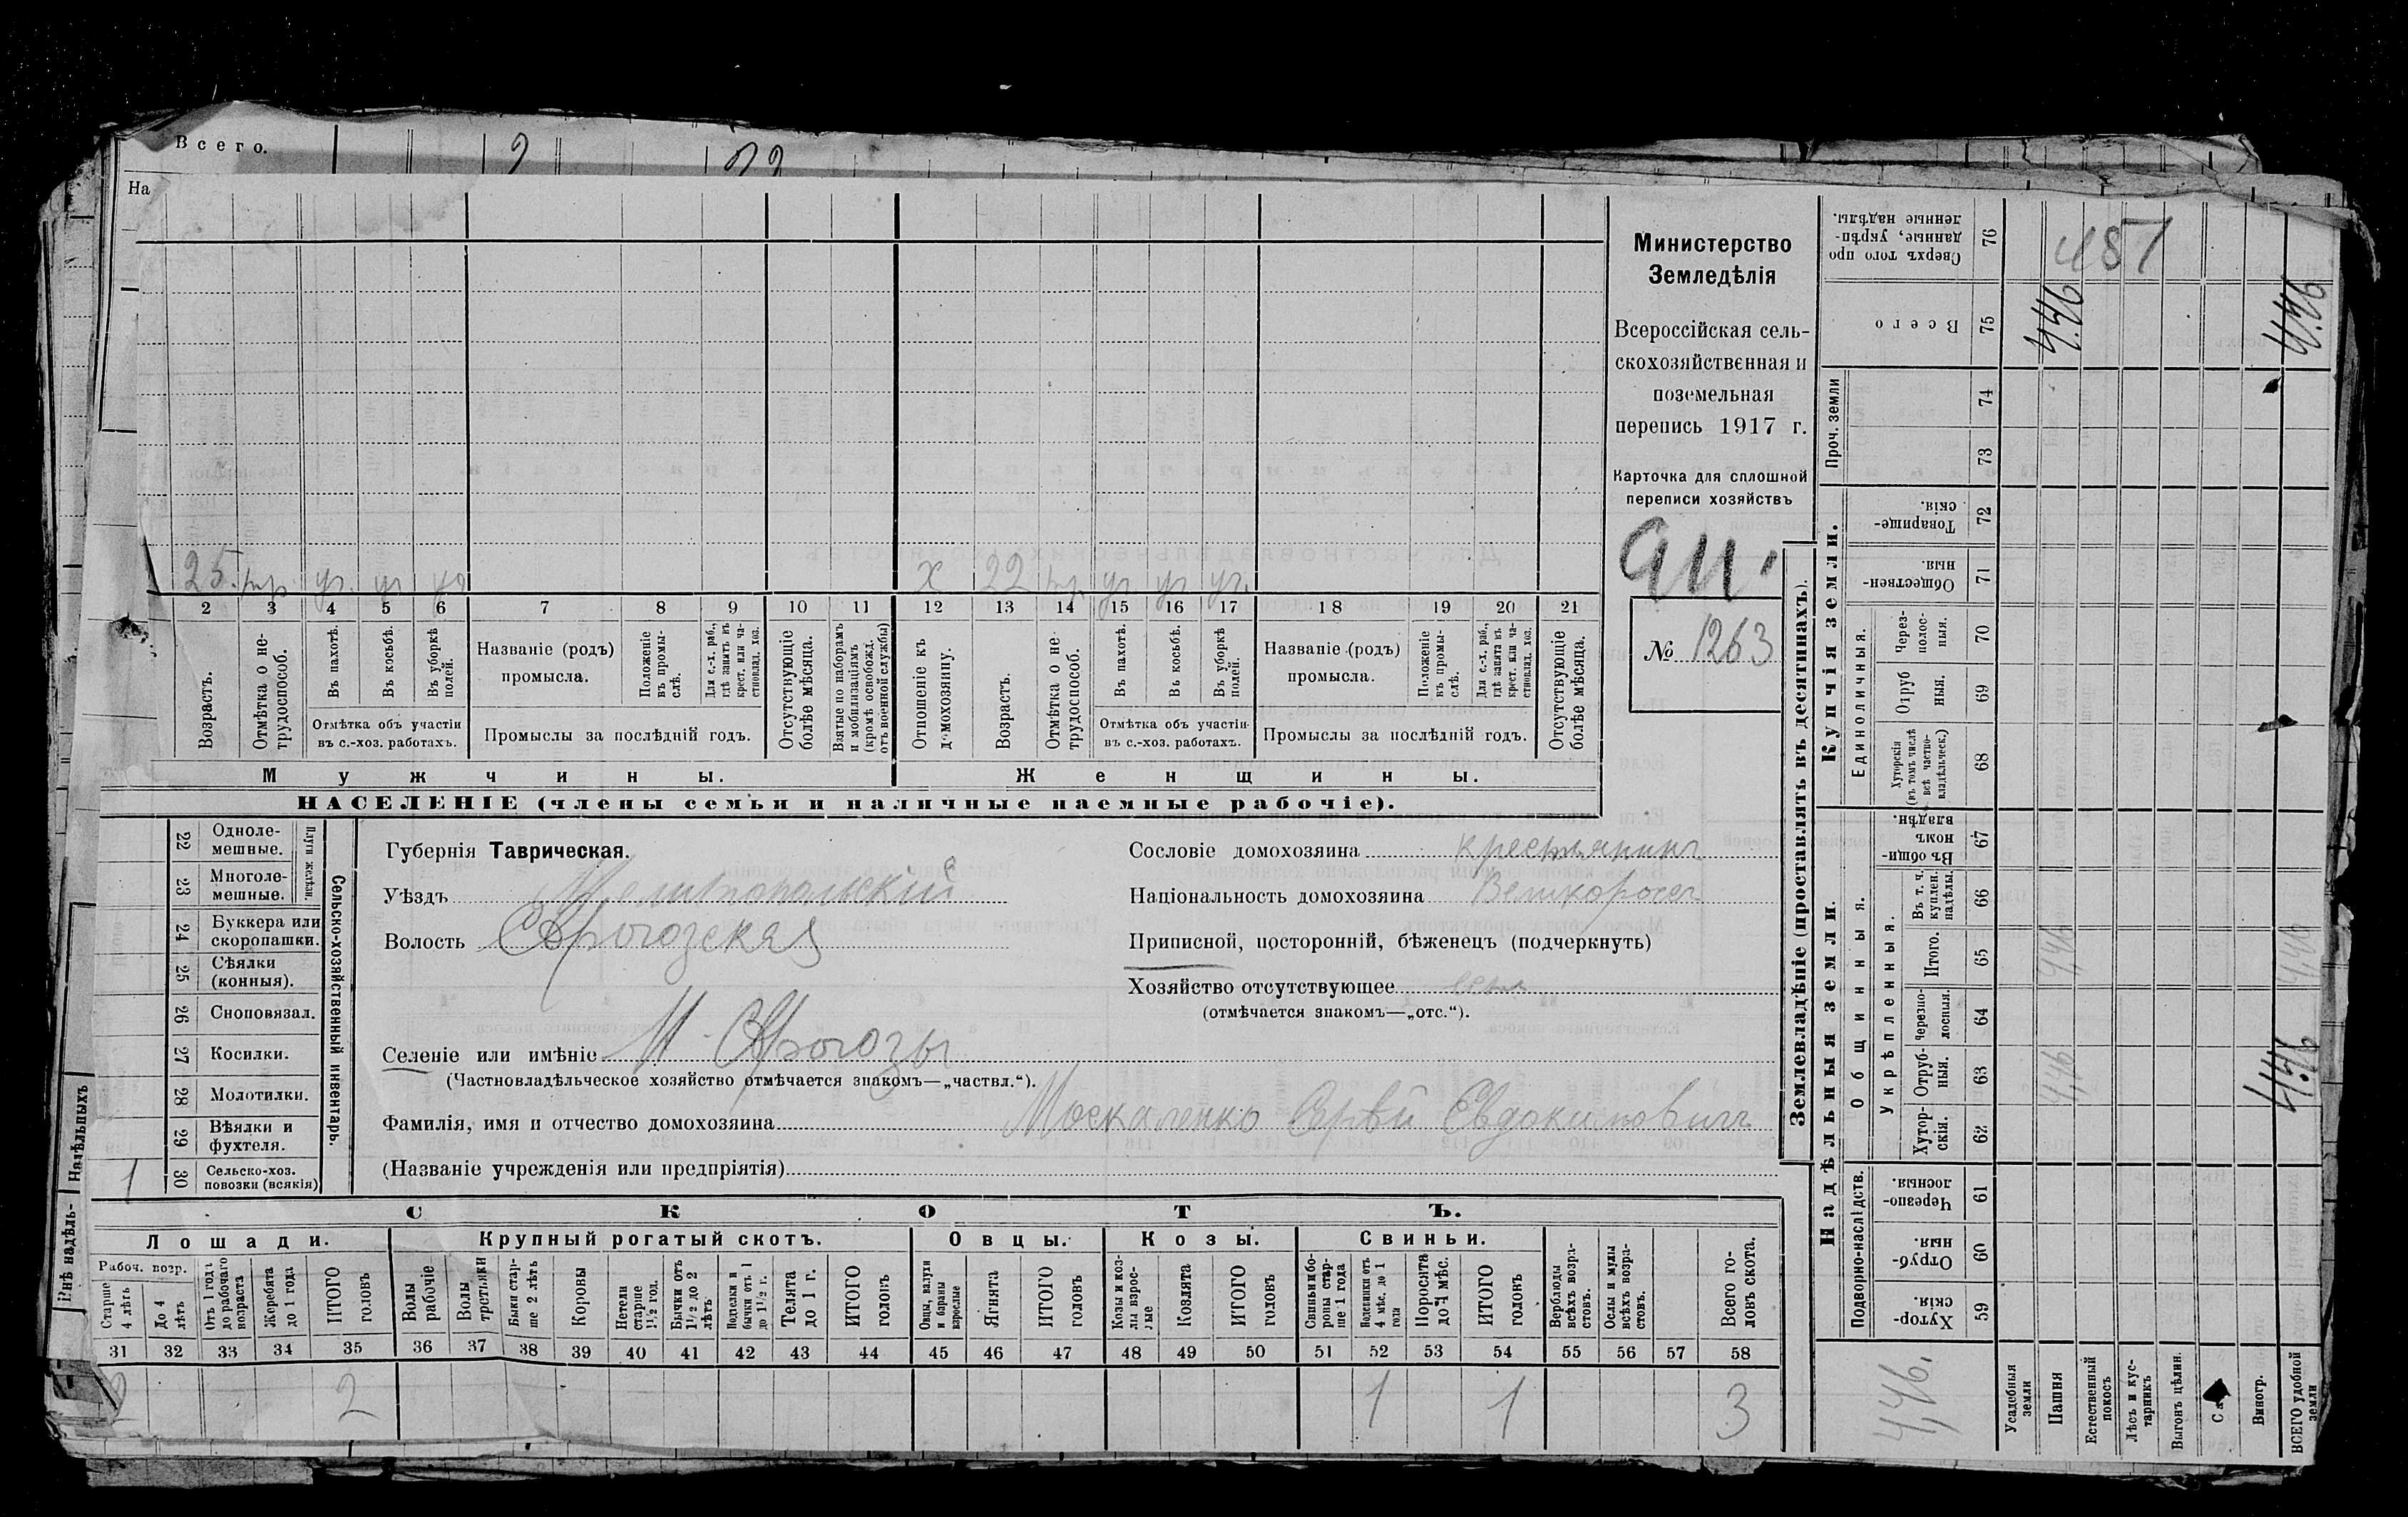 Всего. 2 22
На
25. тр. уч. уч. уч. х 22 тр. уч. уч. уч.
2 3 4 5 6 7 8 9 10 11 12 13 14 15 16 17 18 19 20 21
Возрастъ.
Отмѣтка о не-
трудоспособ.
Въ пахотѣ.
Въ косьбѣ.
Въ уборкѣ
полей.
Отмѣтка объ участіи
въ с.-хоз. работахъ.
Названіе (родъ)
промысла.
Положеніе
въ промы-
слѣ.
Для с.-х. раб.,
гдѣ занятъ въ
крест. или ча-
стновлад. хоз.
Промыслы за послѣдній годъ.
Отсутствующіе
болѣе мѣсяца.
Взятые по наборамъ
и мобилизаціямъ
(кромѣ освобожд.
отъ военной службы)
Отношеніе къ
домохозяину.
Возрастъ.
Отмѣтка о не-
трудоспособ.
Въ пахотѣ.
Въ косьбѣ.
Въ уборкѣ
полей.
Отмѣтка объ участіи
въ с.-хоз. работахъ.
Названіе (родъ)
промысла.
Положеніе
въ промы-
слѣ.
Для с.-х. раб.,
гдѣ занята въ
крест. или ча-
стновлад. хоз.
Промыслы за послѣдній годъ.
Отсутствующіе
болѣе мѣсяца.
Мужчины. Женщины.
НАСЕЛЕНІЕ (члены семьи и наличные наемные рабочіе).
Министерство
Земледѣлія
Всероссійская сель-
скохозяйственная и
поземельная
перепись 1917 г.
Карточка для сплошной
переписи хозяйствъ
№ 1263
22 Одноле-
мешные.
23 Многоле-
мешные.
Плуги желѣзн.
24 Буккера или
скоропашки.
25 Сѣялки
(конныя).
26 Сноповязал.
27 Косилки.
28 Молотилки.
29 Вѣялки и
фухтеля.
1 30 Сельско-хоз.
повозки (всякія)
Сельско-хозяйственный инвентарь.
Губернія Таврическая.
Уѣздъ Мелитопольскій
Волость
Селеніе или имѣніе
(Частновладѣльческое хозяйство отмѣчается знакомъ—„частвл.“).
Фамилія, имя и отчество домохозяина Москаленко Евдокимовичъ
(Названіе учрежденія или предпріятія)
Сословіе домохозяина крестьянинъ
Національность домохозяина Великороссъ
Приписной, посторонній, бѣженецъ (подчеркнуть)
Хозяйство отсутствующее
(отмѣчается знакомъ—„отс.“).
Надѣльныхъ
Внѣ надѣль-
СКОТЪ.
Лошади. Крупный рогатый скотъ. Овцы. Козы. Свиньи.
Рабоч. возр.
Старше
4 лѣтъ
До 4
лѣтъ
Отъ 1 года
до рабочаго
возраста
Жеребята
до 1 года
ИТОГО
головъ
Волы
рабочіе
Волы
третьяки
Быки стар-
ше 2 лѣтъ
Коровы
Нетели
старше
1½ год.
Бычки отъ
1½ до 2
лѣтъ
Подтелки и
бычки отъ 1
до 1½ г.
Телята
до 1 г.
ИТОГО
головъ
Овцы, валухи
и бараны
взрослые
Ягнята
ИТОГО
головъ
Козы и коз-
лы взрос-
лые
Козлята
ИТОГО
головъ
Свиньи и бо-
ровы стар-
ше 1 года
Подсвинки отъ
4 мѣс. до 1
года
Поросята
до 4 мѣс.
ИТОГО
головъ
Верблюды
всѣхъ возра-
стовъ.
Ослы и мулы
всѣхъ возра-
стовъ.
Всего го-
ловъ скота.
31 32 33 34 35 36 37 38 39 40 41 42 43 44 45 46 47 48 49 50 51 52 53 54 55 56 57 58
2 2 1 1 3
Землевладѣніе (проставлять въ десятинахъ).
Надѣльныя земли. Купчія земли. Проч. земли
Подворно-наслѣдств. Общинныя. Укрѣпленныя. Единоличныя.
Хутор-
скія. 59
Отруб-
ныя. 60
Черезпо-
лосныя. 61
Хутор-
скія. 62
Отруб-
ныя. 63
Черезпо-
лосныя. 64
Итого. 65
Въ т. ч.
куплен.
надѣлы. 66
Въ общин-
номъ
владѣн. 67
Хуторскія
(въ томъ числѣ
всѣ частно-
владѣльческ.) 68
Отруб
ныя. 69
Через-
полос-
ныя. 70
Обществен-
ныя. 71
Товарище-
скія. 72
73 74
Всего 75
Сверхъ того про
данные, укрѣп-
ленные надѣлы. 76
4,46.
Усадебныя
земли
Пашня 4,46 4,46 4.46
Естественный
покосъ
Лѣсъ и кус-
тарникъ
Выгонъ цѣлин.
Виногр.
ВСЕГО удобной
земли 4.46 4.46 4.46
451